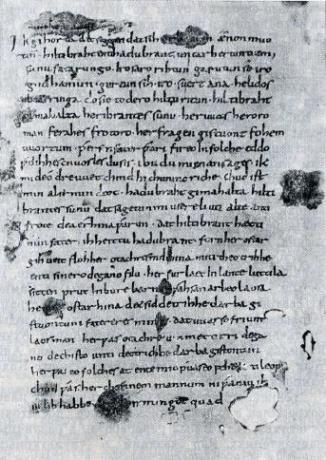 Ik gihorta ðat seggen ðat sih ænon muo
tin · hiltibraht enti haðubrant · untar heriun tuem ·
sunu fatarungo · iro saro rihtun garutun se iro
guðhamun · gurtun sih · iro · suert ana · helidos
ubar ringa do sie to dero hiltu ritun · hiltibraht
gimahalta heribrantes sunu · her uuas heroro
man ferahes frotoro · her fragen gistuont fohem
uuortum · ƿer sin fater ƿari fireo In folche eddo
ƿelihhes cnuosles du sis · ibu du mi enan sages · ik
mi de odre uuet chind In chunincriche · chud ist
min al irmin deot · hadubraht gimahalta hilti
brantes sunu dat sagetun mi usere liuti alte anti
frote dea erhina ƿarun · dat hiltibrant hætti
min fater · ih heittu hadubrant · forn her ostar
gihueit floh her otachres nid hina miti theotrihhe
enti sinero degano filu · her furlaet In lante luttila
sitten prut In bure barn unƿahsan arbeo laosa
ostar hina det sid detrihhe darba gi
stuontum fatereres mines · dat uuas so friunt
laos man her ƿas otachre ummet tirri dega
no dechisto unti deotrichhe darba gistontun
her ƿas eo folches at ente imo ƿuas eo feheta ti leop
chud ƿas her chonnem mannum ni ƿaniu ih
iu lib habbe quad